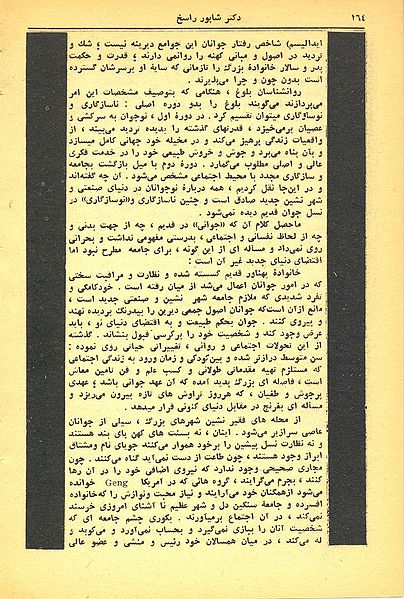 ۱۶۴
دکتر شاپور راسخ
ایدالیسم) شاخص رفتار جوانان این جوامع دیرینه نیست ؛ شك و
تردید در اصول و مبانی کهنه را روانمی دارند ؛ قدرت و حکمت
پدر و سالار خانوادهٔ بزرگ را تازمانی که سایهٔ او برسرشان گسترده
است بدون چون و چرا می‌پذیرند .
روانشناسان بلوغ ، هنگامی که بتوصیف مشخصات این امر
می‌پردازند می‌گویند بلوغ را بدو دوره اصلی : ناسازگاری و
نوسازگاری میتوان تقسیم کرد . در دورهٔ اول ، نوجوان به سرکشی و
عصیان برمی‌خیزد ، قدرتهای گذشته را بدیده تردید می‌بیند ، از
واقعیات زندگی پرهیز می‌کند و در مخیله خود جهانی کامل میسازد
و بآن پناه می‌برد و جوش و خروش طبیعی خود را در خدمت فکری
عالی و اصلی مطلوب می‌گمارد . دورهٔ دوم با میل بازگشت بجامعه
و سازگاری مجدد با محیط اجتماعی مشخص می‌شود . آن چه گفته‌اند
و در این‌جا نقل کردیم ، همه دربارهٔ نوجوانان در دنیای صنعتی و
شهر نشین جدید صادق است و چنین ناسازگاری و«نوسازگاری» در
نسل جوان قدیم دیده نمی‌شود .
ماحصل کلام آن که «جوانی» در قدیم ، چه از جهت بدنی و
چه از لحاظ نفسانی و اجتماعی ، بدرستی مفهومی نداشت و بحرانی
روی نمی‌داد و مساله ای از این گونه ، برای جامعه مطرح نبود اما
اقتضای دنیای جدید غیر آن است :
خانوادهٔ پهناور قدیم گسسته شده و نظارت و مراقبت سختی
که در امور جوانان اعمال می‌شد از میان رفته است . خودکامگی و
تفرد شدیدی که ملازم جامعه شهر نشین و صنعتی جدید است ،
مانع ازآن است‌که جوانان اصول جمعی دیرین را بیدرنگ بردیده نهند
و پیروی کنند . جوان بحکم طبیعت و به اقتضای دنیای نو ، باید
عرض وجود کند و شخصیت خود را برکرسی قبول بنشاند . گذشته
از این تحولات اجتماعی و روانی ، تغییراتی حیاتی روی نموده :
سن متوسط درازتر شده و بین‌کودکی و زمان ورود به زندگی اجتماعی
که مستلزم تهیه مقدماتی طولانی و کسب علم و فن تامین معاش
است ، فاصله ای بزرگ پدید آمده که آن عهد جوانی باشد ؛ عهدی
پرجوش و طغیان ، که هرروز تراوش های تازه بیرون می‌ریزد و
مساله ای بغرنج در مقابل دنیای کنونی قرار میدهد .
از محله های فقیر نشین شهرهای بزرگ ، سیلی از جوانان
عاصی سرازیر می‌شود . اینان ، نه بسنت های کهن پای بند هستند
و نه نظارت نسل پیشین را برخود هموار می‌کنند جویای نام ومشتاق
ابراز وجود هستند ، چون طاعت از دست نمی‌آید گناه می‌کنند . چون
مجاری صحیحی وجود ندارد که نیروی اضافی خود را در آن رها
کنند ، بجرم می‌گرایند ، گروه هائی که در آمریکا Geng خوانده
می‌شود ازهمگنان خود می‌آرایند و نیاز محبت ونوازش را که‌خانواده
افسرده و جامعهٔ سنگین دل و شهر عظیم نا آشنای امروزی خرسند
نمی‌کند ، در آن اجتماع برمیاورند . بکوری چشم جامعه ای که
شخصیت آنان را ببازی نمی‌گیرد و بحساب نمی‌آورد و می‌کوبد و
له می‌کند ، در میان همسالان خود رئیس و منشی و عضو عالی